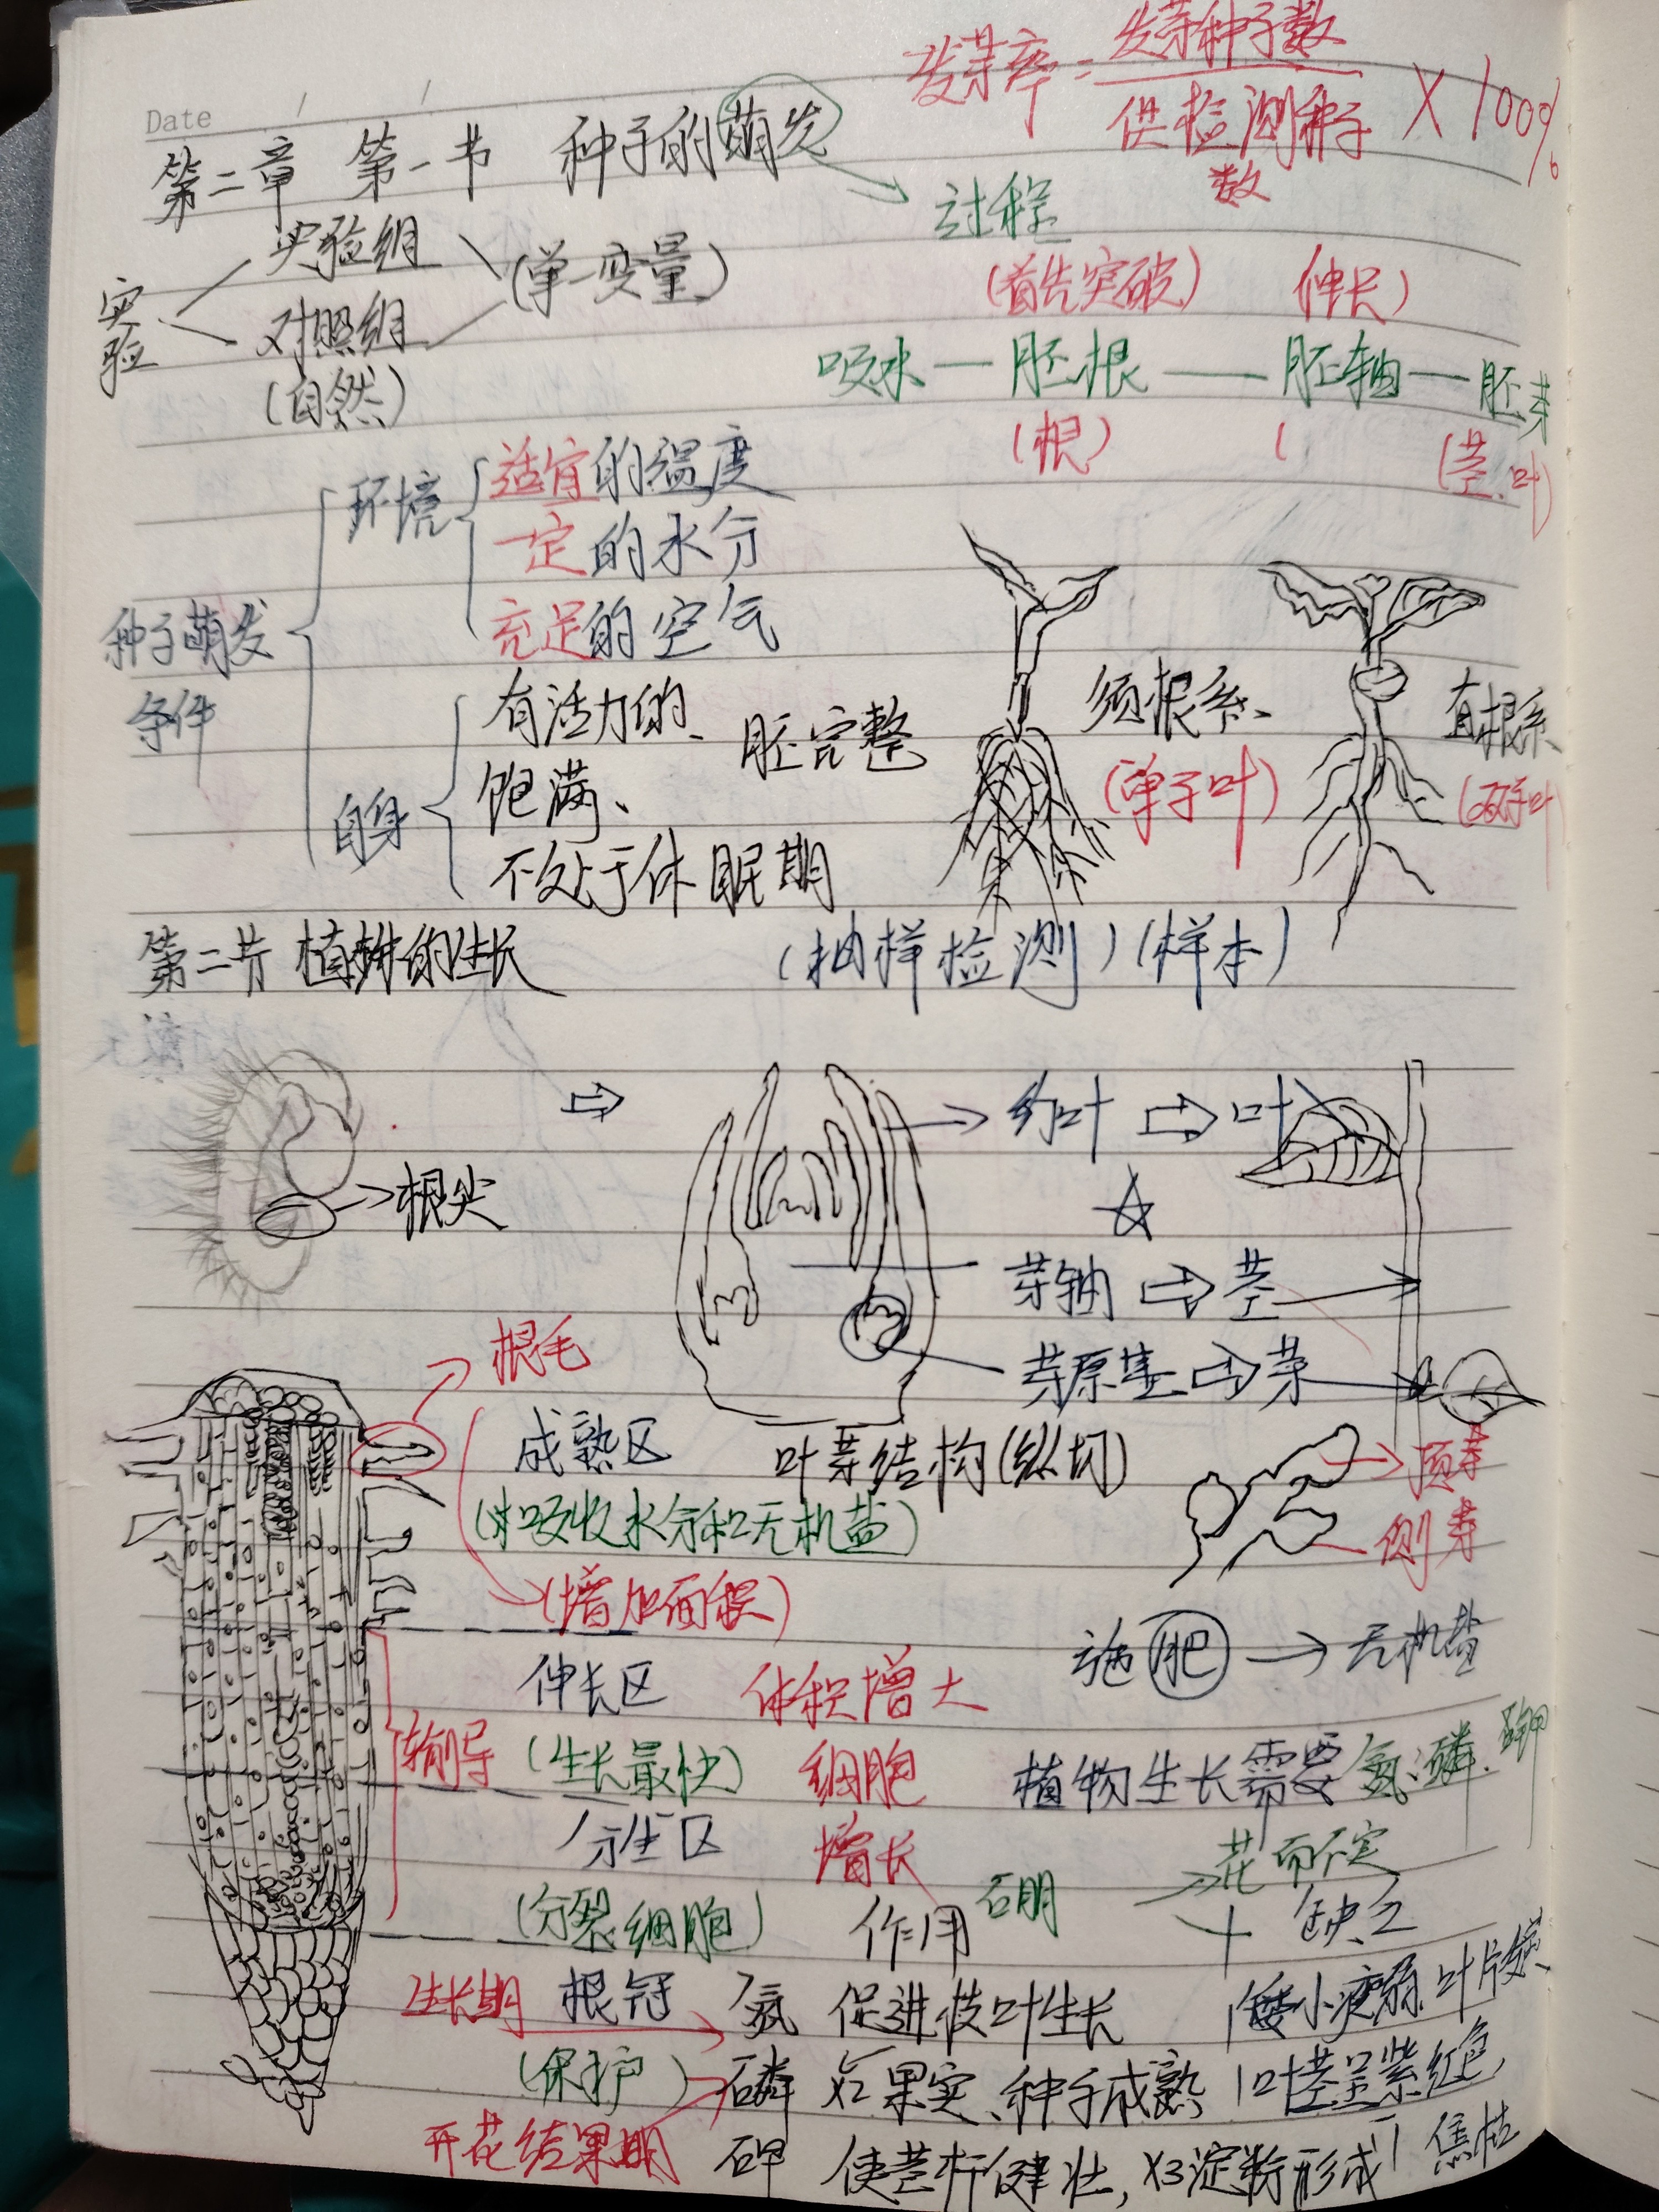 发芽率 = 发芽种子数 / 供检测种子数 × 100%
Date / /
第二章 第一节 种子的萌发
过程
实验
实验组
对照组
(自然)
(单一变量)
(首先突破) (伸长)
吸水 — 胚根 — 胚轴 — 胚芽
(根) ( (茎.叶)
种子萌发
条件
环境
适宜的温度
一定的水分
充足的空气
自身
有活力的、
饱满、
不处于休眠期
胚完整
须根系、
(单子叶)
直根系
(双子叶
第二节 植株的生长
(抽样检测) (样本)
根尖
幼叶 ⇨ 叶
☆
芽轴 ⇨ 茎
芽原基 ⇨ 芽
叶芽结构(纵切)
顶芽
侧芽
根毛
成熟区
(吸收水分和无机盐)
(增加面积)
施肥 → 无机盐
伸长区 体积增大
输导
(生长最快) 细胞
增长
植物生长需要氮.磷.钾
分生区
(分裂细胞)
硼 → 花而不实
作用 缺乏
生长期 根冠
(保护)
开花结果期
氮 促进枝叶生长 矮小瘦弱
磷 果实、种子成熟 叶茎呈紫红色
钾 使茎杆健壮, 淀粉形成 焦枯